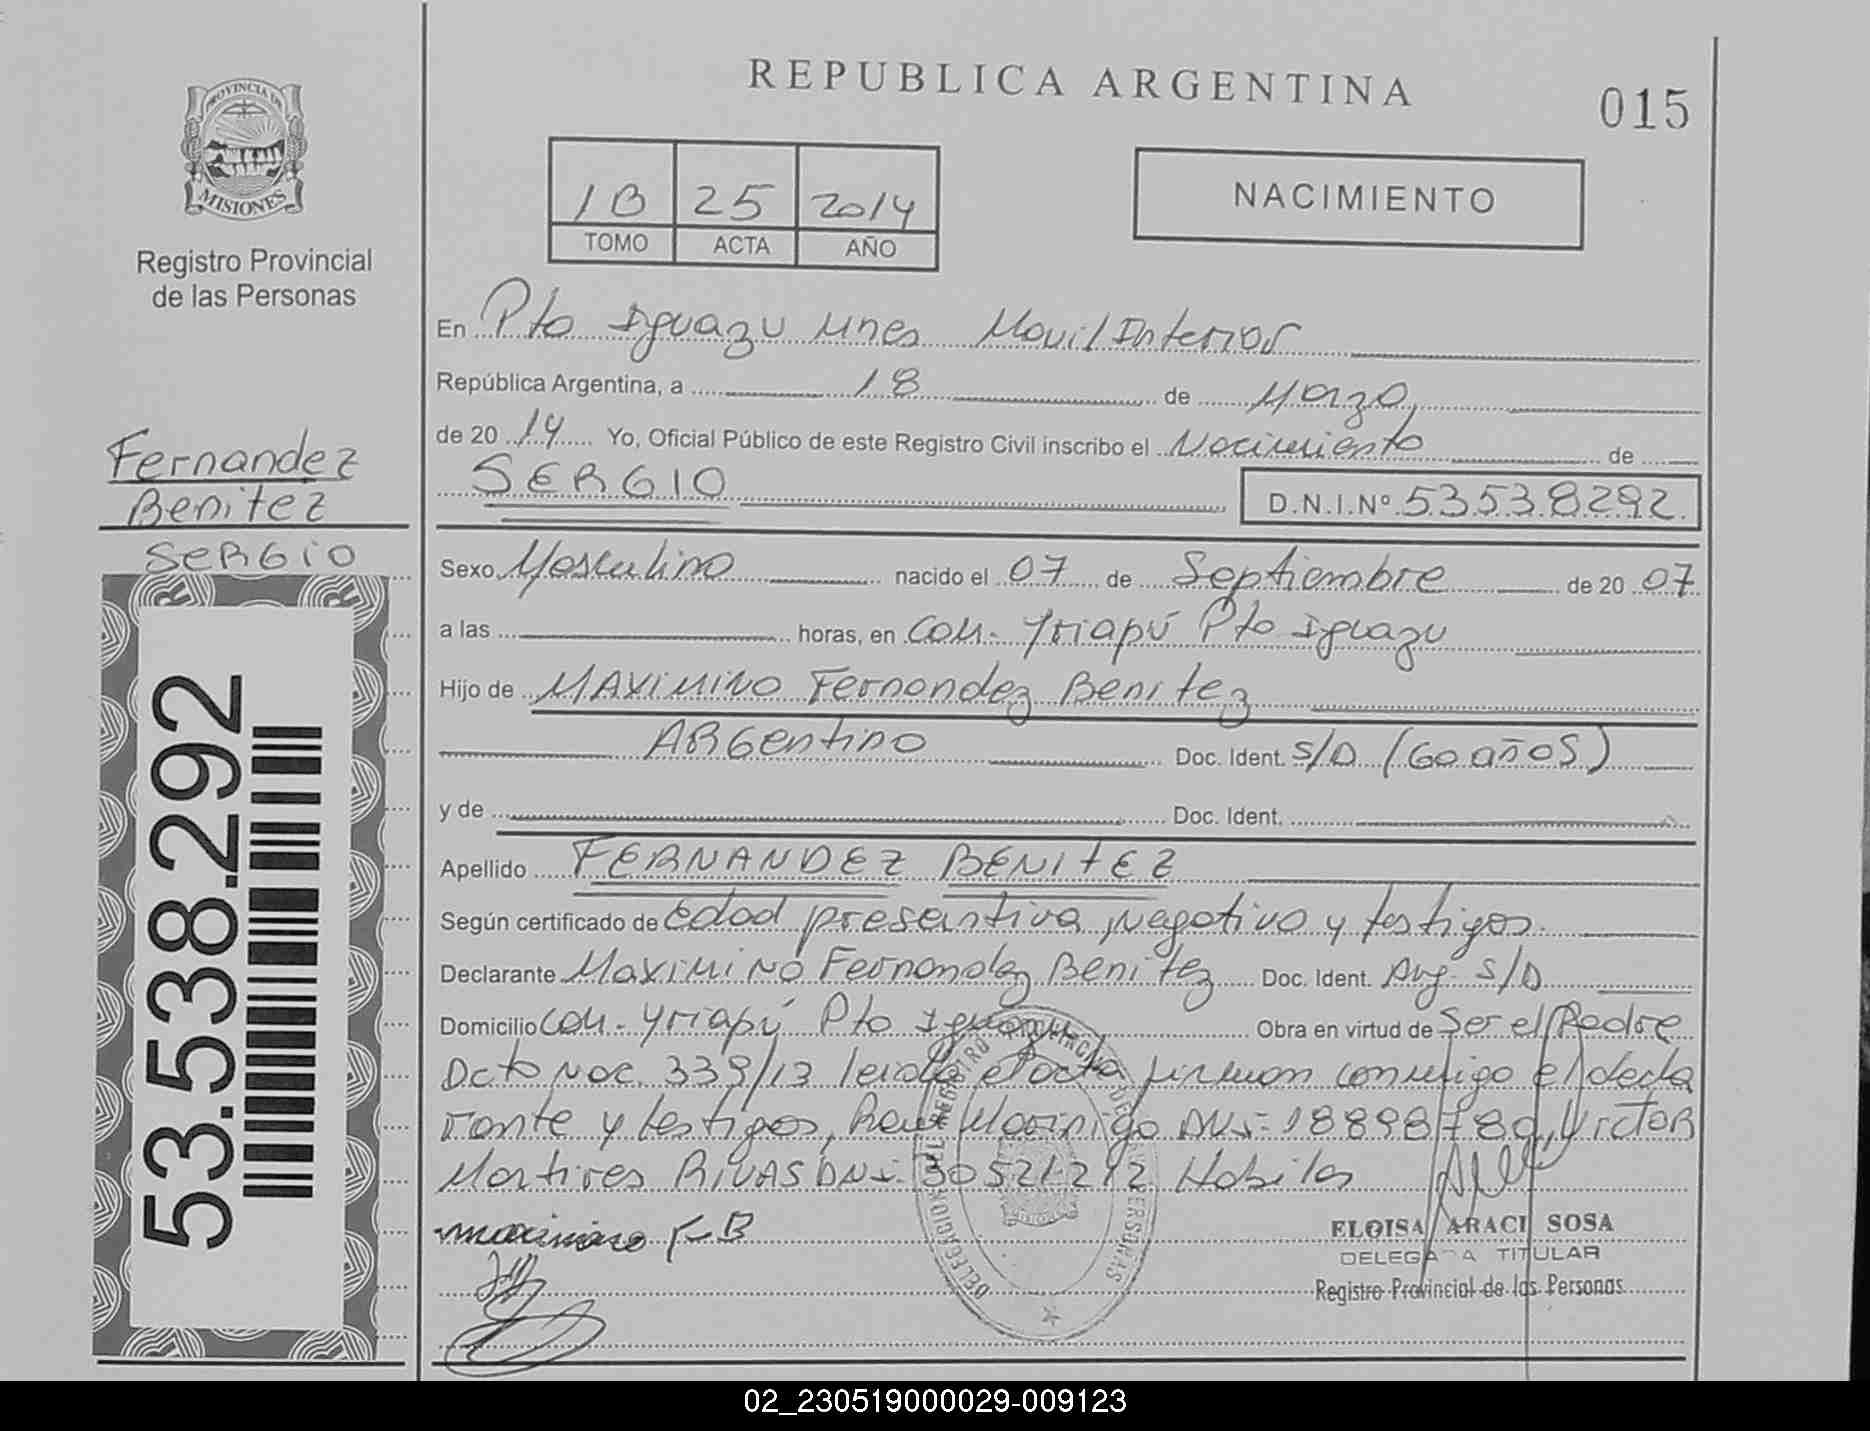 PROVINCIA DE
MISIONES
Registro Provincial
de las Personas
Fernandez
Benitez
SERGIO
53.538.292
REPUBLICA ARGENTINA
015
1B 25 2014
TOMO ACTA AÑO
NACIMIENTO
En Pto Iguazu Mnes Movil Interior
República Argentina, a 18 de Marzo
de 2014 Yo, Oficial Público de este Registro Civil inscribo el Nacimiento de
SERGIO D.N.I.Nº 53538292
Sexo Masculino nacido el 07 de Septiembre de 2007
a las horas, en Com. Yriapú Pto Iguazu
Hijo de MAXIMINO Fernandez Benitez
ARGentino Doc. Ident. S/D (60 años)
y de Doc. Ident.
Apellido FERNANDEZ BENITEZ
Según certificado de Edad presentiva, negativo y testigos.
Declarante Maximino Fernandez Benitez Doc. Ident. Arg. S/D
Domicilio Com. Yriapú Pto Iguazu Obra en virtud de Ser el Padre
Dcto Nac. 339/13 leida el acta firman conmigo el decla
rante y testigos, Morinigo DNI: 18898780, Victor
Martires RIVAS DNI: 30521212 Habiles
maximino F-B
DELEGACION DEL REGISTRO PROVINCIAL DE LAS PERSONAS
ELOISA ARACI SOSA
DELEGADA TITULAR
Registro Provincial de las Personas
02_230519000029-009123